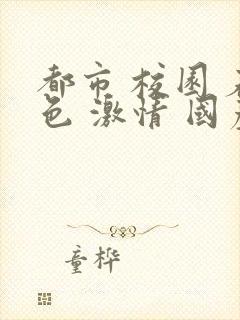 都市 校园
色 激情 國
童桦